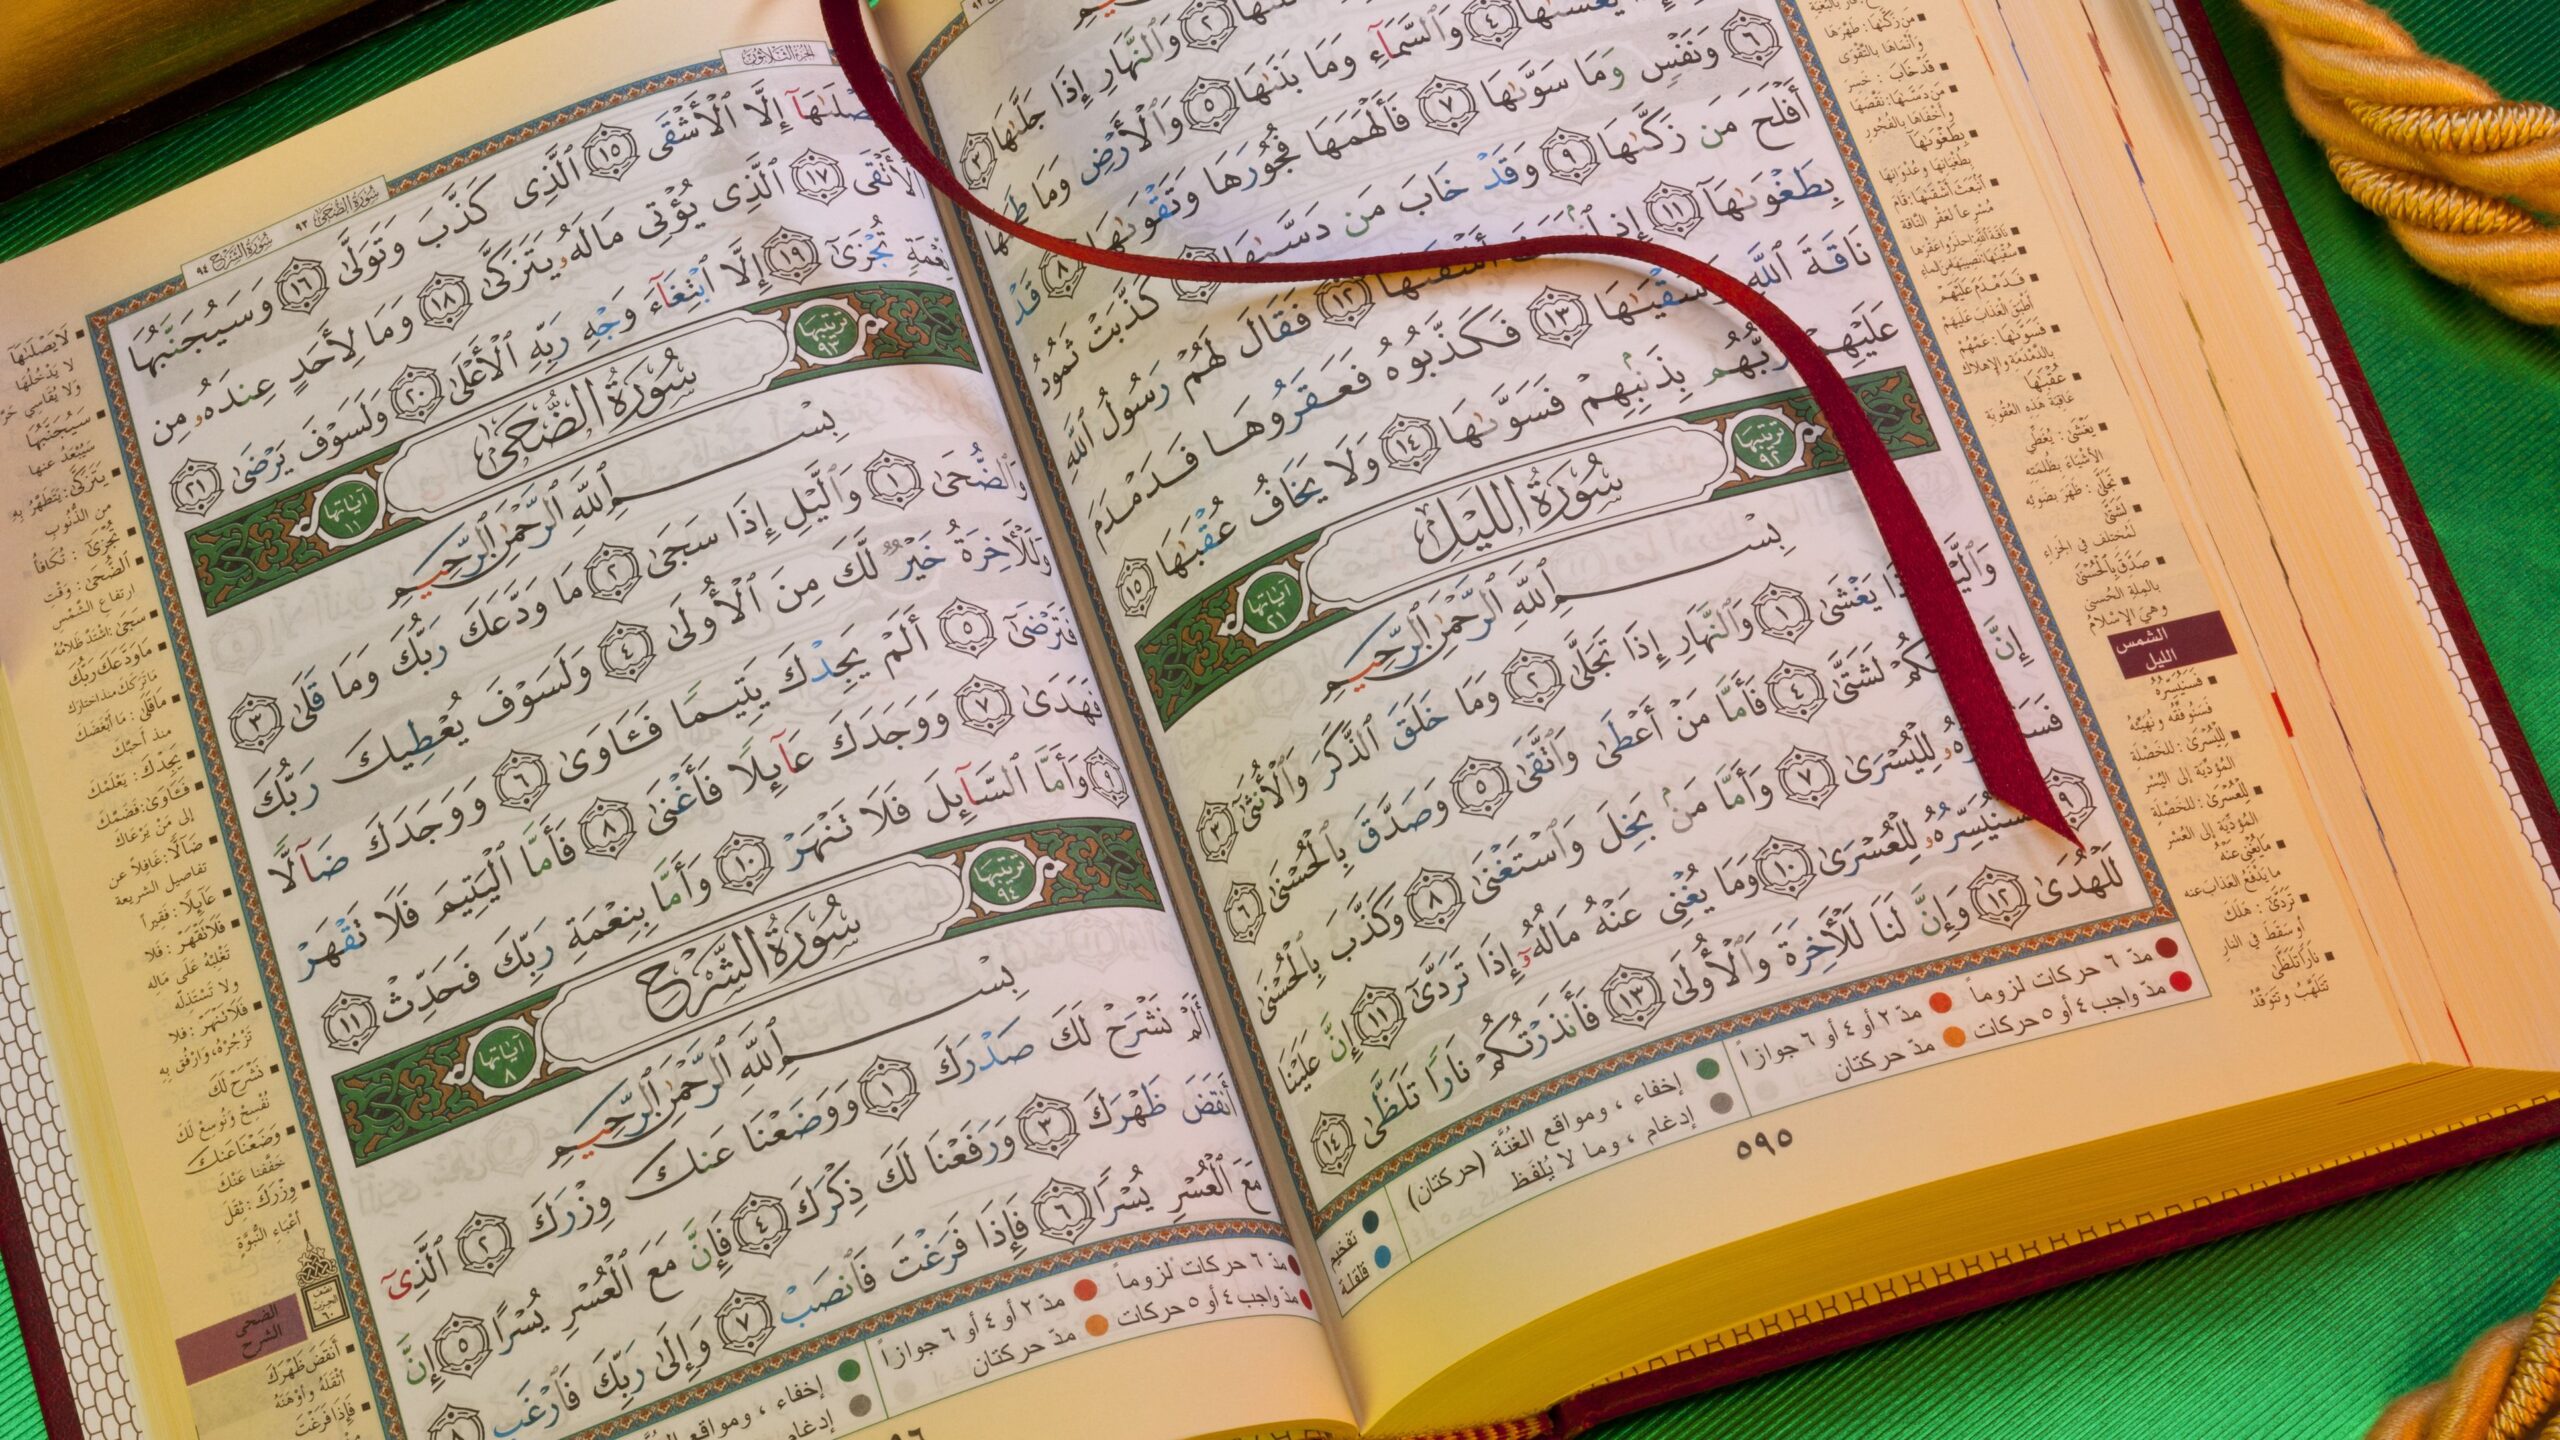 وَٱلنَّهَارِ إِذَا جَلَّىٰهَا ٣
وَٱلسَّمَآءِ وَمَا بَنَىٰهَا ٥ وَٱلْأَرْضِ وَمَا طَحَىٰهَا
٦ وَنَفْسٍ وَمَا سَوَّىٰهَا ٧ فَأَلْهَمَهَا فُجُورَهَا وَتَقْوَىٰهَا ٨ قَدْ
أَفْلَحَ مَن زَكَّىٰهَا ٩ وَقَدْ خَابَ مَن دَسَّىٰهَا كَذَّبَتْ ثَمُودُ
بِطَغْوَىٰهَآ ١١ إِذِ أَشْقَىٰهَا ١٢ فَقَالَ لَهُمْ رَسُولُ ٱللَّهِ
نَاقَةَ ٱللَّهِ وَسُقْيَٰهَا ١٣ فَكَذَّبُوهُ فَعَقَرُوهَا فَدَمْدَمَ
عَلَيْهِمْ رَبُّهُم بِذَنۢبِهِمْ فَسَوَّىٰهَا ١٤ وَلَا يَخَافُ عُقْبَٰهَا ١٥
ترتيبها ٩٢ سُورَةُ الليْلِ آياتها ٢١
بِسْمِ ٱللَّهِ ٱلرَّحْمَٰنِ ٱلرَّحِيمِ
إِذَا يَغْشَىٰ ١ وَٱلنَّهَارِ إِذَا تَجَلَّىٰ ٢ وَمَا خَلَقَ ٱلذَّكَرَ وَٱلْأُنثَىٰٓ ٣
إِنَّ لَشَتَّىٰ ٤ فَأَمَّا مَنْ أَعْطَىٰ وَٱتَّقَىٰ ٥ وَصَدَّقَ بِٱلْحُسْنَىٰ ٦
لِلْيُسْرَىٰ ٧ وَأَمَّا مَنۢ بَخِلَ وَٱسْتَغْنَىٰ ٨ وَكَذَّبَ بِٱلْحُسْنَىٰ
٩ فَسَنُيَسِّرُهُۥ لِلْعُسْرَىٰ ١٠ وَمَا يُغْنِى عَنْهُ مَالُهُۥٓ إِذَا تَرَدَّىٰٓ ١١ إِنَّ عَلَيْنَا
لَلْهُدَىٰ ١٢ وَإِنَّ لَنَا لَلْأَخِرَةَ وَٱلْأُولَىٰ ١٣ فَأَنذَرْتُكُمْ نَارًا تَلَظَّىٰ ١٤
مدّ ٦ حركات لزوماً مدّ ٢ أو ٤ أو ٦ جوازاً
مدّ واجب ٤ أو ٥ حركات مدّ حركتان
إخفاء ، ومواقع الغُنَّة (حركتان)
إدغام ، وما لا يُلفَظ
تفخيم
قلقلة
٥٩٥
وأنماها بالتقوى
قَدْ خَابَ : خسر
مَن دَسَّىٰهَا : نقصها
وأخفاها بالفجور
بِطَغْوَىٰهَآ
بطغيانها وعدوانها
فَدَمْدَمَ عَلَيْهِمْ
أطبق العذاب عليهم
فَسَوَّىٰهَا : عمّهم
بالدمدمة والإهلاك
عُقْبَٰهَا
عاقبة هذه العقوبة
يَغْشَىٰ : يغطّي
الأشياء بظلمته
تَجَلَّىٰ : ظهر بضوئه
لَشَتَّىٰ
لمختلف في الجزاء
صَدَّقَ بِٱلْحُسْنَىٰ
بالملة الحسنى
وهي الإسلام
الشمس
الليل
فَسَنُيَسِّرُهُۥ
فسنوفّقه ونهيّئه
لِلْيُسْرَىٰ : للخصلة
المؤدّية إلى اليسر
لِلْعُسْرَىٰ : للخصلة
المؤدّية إلى العسر
مَا يُغْنِى عَنْهُ
ما يدفع العذاب عنه
تَرَدَّىٰٓ : هلك
أو سقط في النار
نَارًا تَلَظَّىٰ
تتلهّب وتتوقّد
الجزء الثلاثون سورة الضحى ٩٣ سورة الشرح ٩٤
إِلَّا ٱلْأَشْقَى ١٥ ٱلَّذِى كَذَّبَ وَتَوَلَّىٰ ١٦ وَسَيُجَنَّبُهَا
ٱلْأَتْقَى ١٧ ٱلَّذِى يُؤْتِى مَالَهُۥ يَتَزَكَّىٰ ١٨ وَمَا لِأَحَدٍ عِندَهُۥ مِن
نِّعْمَةٍ تُجْزَىٰٓ ١٩ إِلَّا ٱبْتِغَآءَ وَجْهِ رَبِّهِ ٱلْأَعْلَىٰ ٢٠ وَلَسَوْفَ يَرْضَىٰ ٢١
ترتيبها ٩٣ سُورَةُ الضُّحَىٰ آياتها ١١
بِسْمِ ٱللَّهِ ٱلرَّحْمَٰنِ ٱلرَّحِيمِ
وَٱلضُّحَىٰ ١ وَٱلَّيْلِ إِذَا سَجَىٰ ٢ مَا وَدَّعَكَ رَبُّكَ وَمَا قَلَىٰ ٣
وَلَلْأَخِرَةُ خَيْرٌ لَّكَ مِنَ ٱلْأُولَىٰ ٤ وَلَسَوْفَ يُعْطِيكَ رَبُّكَ
فَتَرْضَىٰٓ ٥ أَلَمْ يَجِدْكَ يَتِيمًا فَـَٔاوَىٰ ٦ وَوَجَدَكَ ضَآلًّا
فَهَدَىٰ ٧ وَوَجَدَكَ عَآئِلًا فَأَغْنَىٰ ٨ فَأَمَّا ٱلْيَتِيمَ فَلَا تَقْهَرْ
٩ وَأَمَّا ٱلسَّآئِلَ فَلَا تَنْهَرْ ١٠ وَأَمَّا بِنِعْمَةِ رَبِّكَ فَحَدِّثْ ١١
ترتيبها ٩٤ سُورَةُ الشَّرْحِ آياتها ٨
بِسْمِ ٱللَّهِ ٱلرَّحْمَٰنِ ٱلرَّحِيمِ
أَلَمْ نَشْرَحْ لَكَ صَدْرَكَ ١ وَوَضَعْنَا عَنكَ وِزْرَكَ ٢ ٱلَّذِىٓ
أَنقَضَ ظَهْرَكَ ٣ وَرَفَعْنَا لَكَ ذِكْرَكَ ٤ فَإِنَّ مَعَ ٱلْعُسْرِ يُسْرًا ٥ إِنَّ
مَعَ ٱلْعُسْرِ يُسْرًا ٦ فَإِذَا فَرَغْتَ فَٱنصَبْ ٧ وَإِلَىٰ رَبِّكَ فَٱرْغَب ٨
مدّ ٦ حركات لزوماً مدّ ٢ أو ٤ أو ٦ جوازاً
مدّ واجب ٤ أو ٥ حركات مدّ حركتان
إخفاء ، ومواقع
إدغام
لَا يَصْلَىٰهَآ
لا يدخلها
سَيُجَنَّبُهَا
سيبعد عنها
يَتَزَكَّىٰ : يتطهّر به
من الذنوب
تُجْزَىٰٓ : تكافأ
ٱلضُّحَىٰ : وقت
ارتفاع الشمس
سَجَىٰ : اشتد ظلامه
مَا وَدَّعَكَ رَبُّكَ
ما تركك منذ اختارك
مَا قَلَىٰ : ما أبغضك
منذ أحبك
يَجِدْكَ : يعلمك
فَـَٔاوَىٰ : فضمّك
إلى من يرعاك
ضَآلًّا : غافلاً عن
تفاصيل الشريعة
عَآئِلًا : فقيراً
فَلَا تَقْهَرْ : فلا
تغلبه على ماله
ولا تستذلّه
فَلَا تَنْهَرْ : فلا
تزجره، وارفق به
نَشْرَحْ لَكَ
نفسح ونوسع لك
وَضَعْنَا عَنكَ
خففنا عنك
وِزْرَكَ : ثقل
أعباء النبوّة
نصف الحزب ٦٠
الضحى
الشرح
أَنقَضَ ظَهْرَكَ
أثقله وأوهنه
فَإِذَا فَرَغْتَ